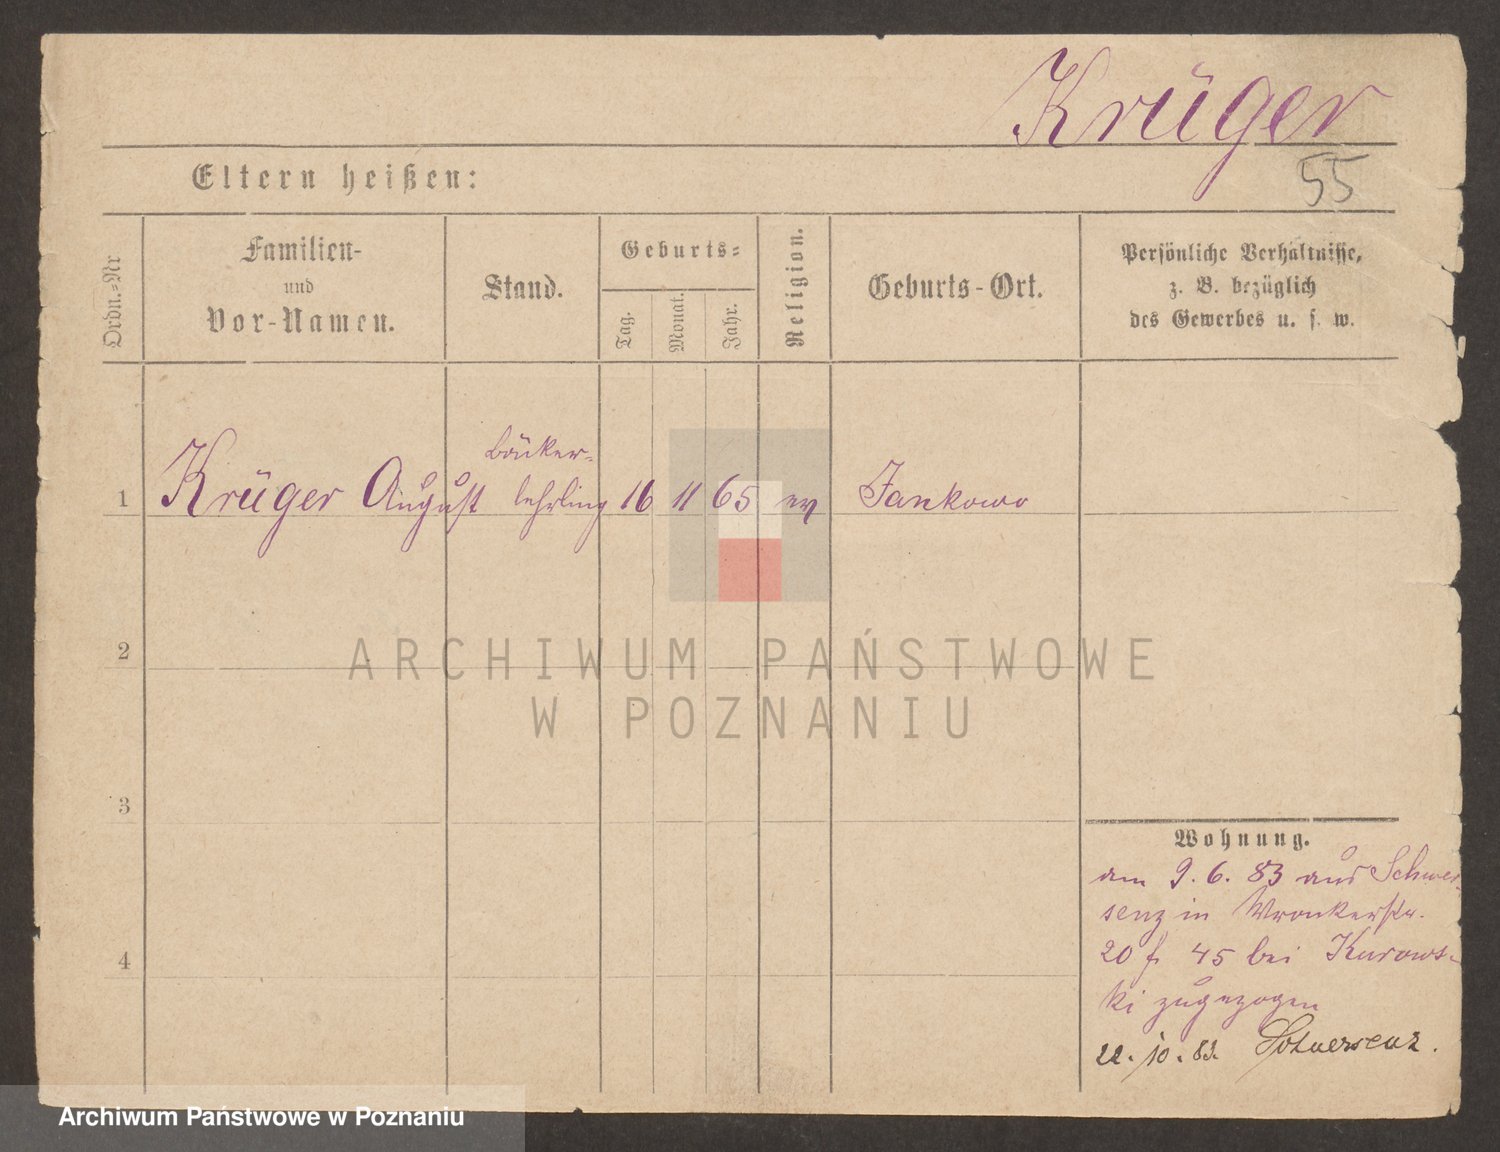 Krüger
55
Eltern heißen:
Ordn.=Nr
Familien-
und
Vor-Namen.
Stand.
Geburts=
Tag.
Monat.
Jahr.
Religion.
Geburts-Ort.
Persönliche Verhältnisse,
z. B. bezüglich
des Gewerbes u. s. w.
Bäcker=
1 Krüger August lehrling 16 11 65 ev Jankowo
2
ARCHIWUM PAŃSTWOWE
W POZNANIU
3
Wohnung.
am 9. 6. 83 aus Schwer-
senz in Wronkerstr.
4
20 f. 45 bei Kurows-
ki zugezogen
22. 10. 83. Schwersenz.
Archiwum Państwowe w Poznaniu